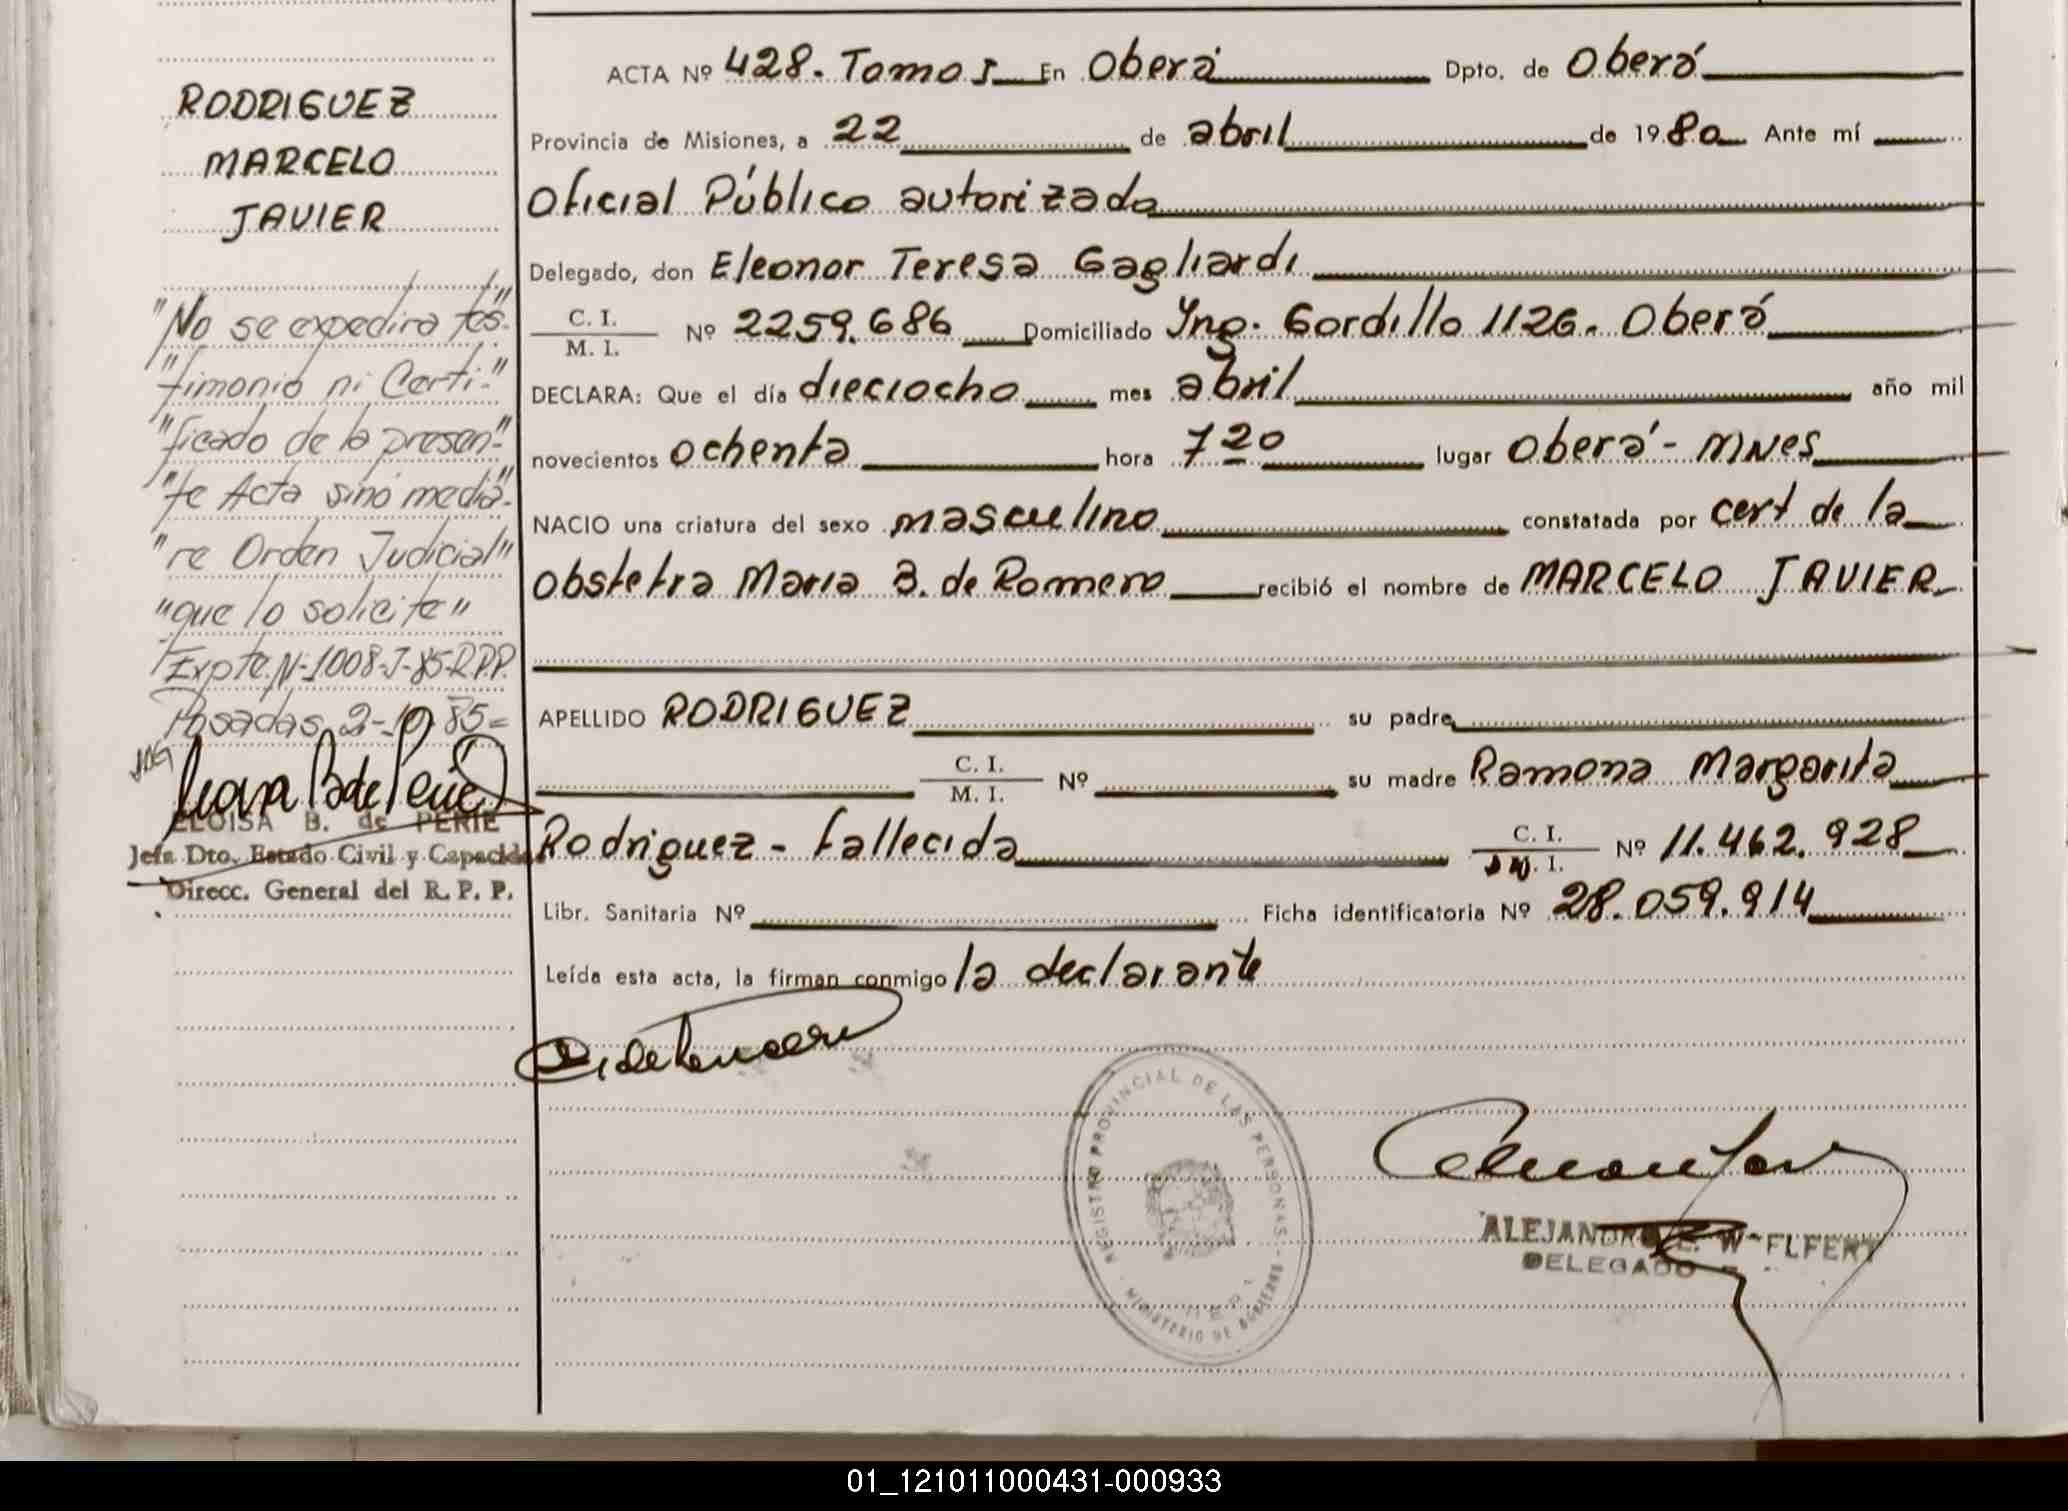 RODRIGUEZ
MARCELO
JAVIER
"No se expedira tes-"
"timonio ni Certi-"
"ficado de la presen-"
"te Acta sino media-"
"re Orden Judicial"
"que lo solicite"
Expte. N-1008-J-85-R.P.P.
Posadas, 2-10 85=
ELOISA B. de PERIE
Jefa Dto. Estado Civil y Capacidad
Direcc. General del R. P. P.
ACTA Nº 428. Tomo I En Oberá Dpto. de Oberá
Provincia de Misiones, a 22 de abril de 1980 Ante mí
Oficial Público autorizado
Delegado, don Eleonor Teresa Gagliardi
C. I.
M. I. Nº 2259.686 Domiciliado Ing. Gordillo 1126. Oberá
DECLARA: Que el día dieciocho mes abril año mil
novecientos ochenta hora 7 20 lugar Oberá - MNES
NACIO una criatura del sexo masculino constatada por cert de la
Obstetra Maria B. de Romero recibió el nombre de MARCELO JAVIER
APELLIDO RODRIGUEZ su padre
C. I.
M. I. Nº su madre Ramona Margarita
Rodriguez - fallecida C. I.
I. Nº 11.462.928
Libr. Sanitaria Nº Ficha identificatoria Nº 28.059.914
Leída esta acta, la firman conmigo la declarante
REGISTRO PROVINCIAL DE LAS PERSONAS - MINISTERIO DE GOBIERNO
ALEJANDRO E. W
DELEGADO
01_121011000431-000933